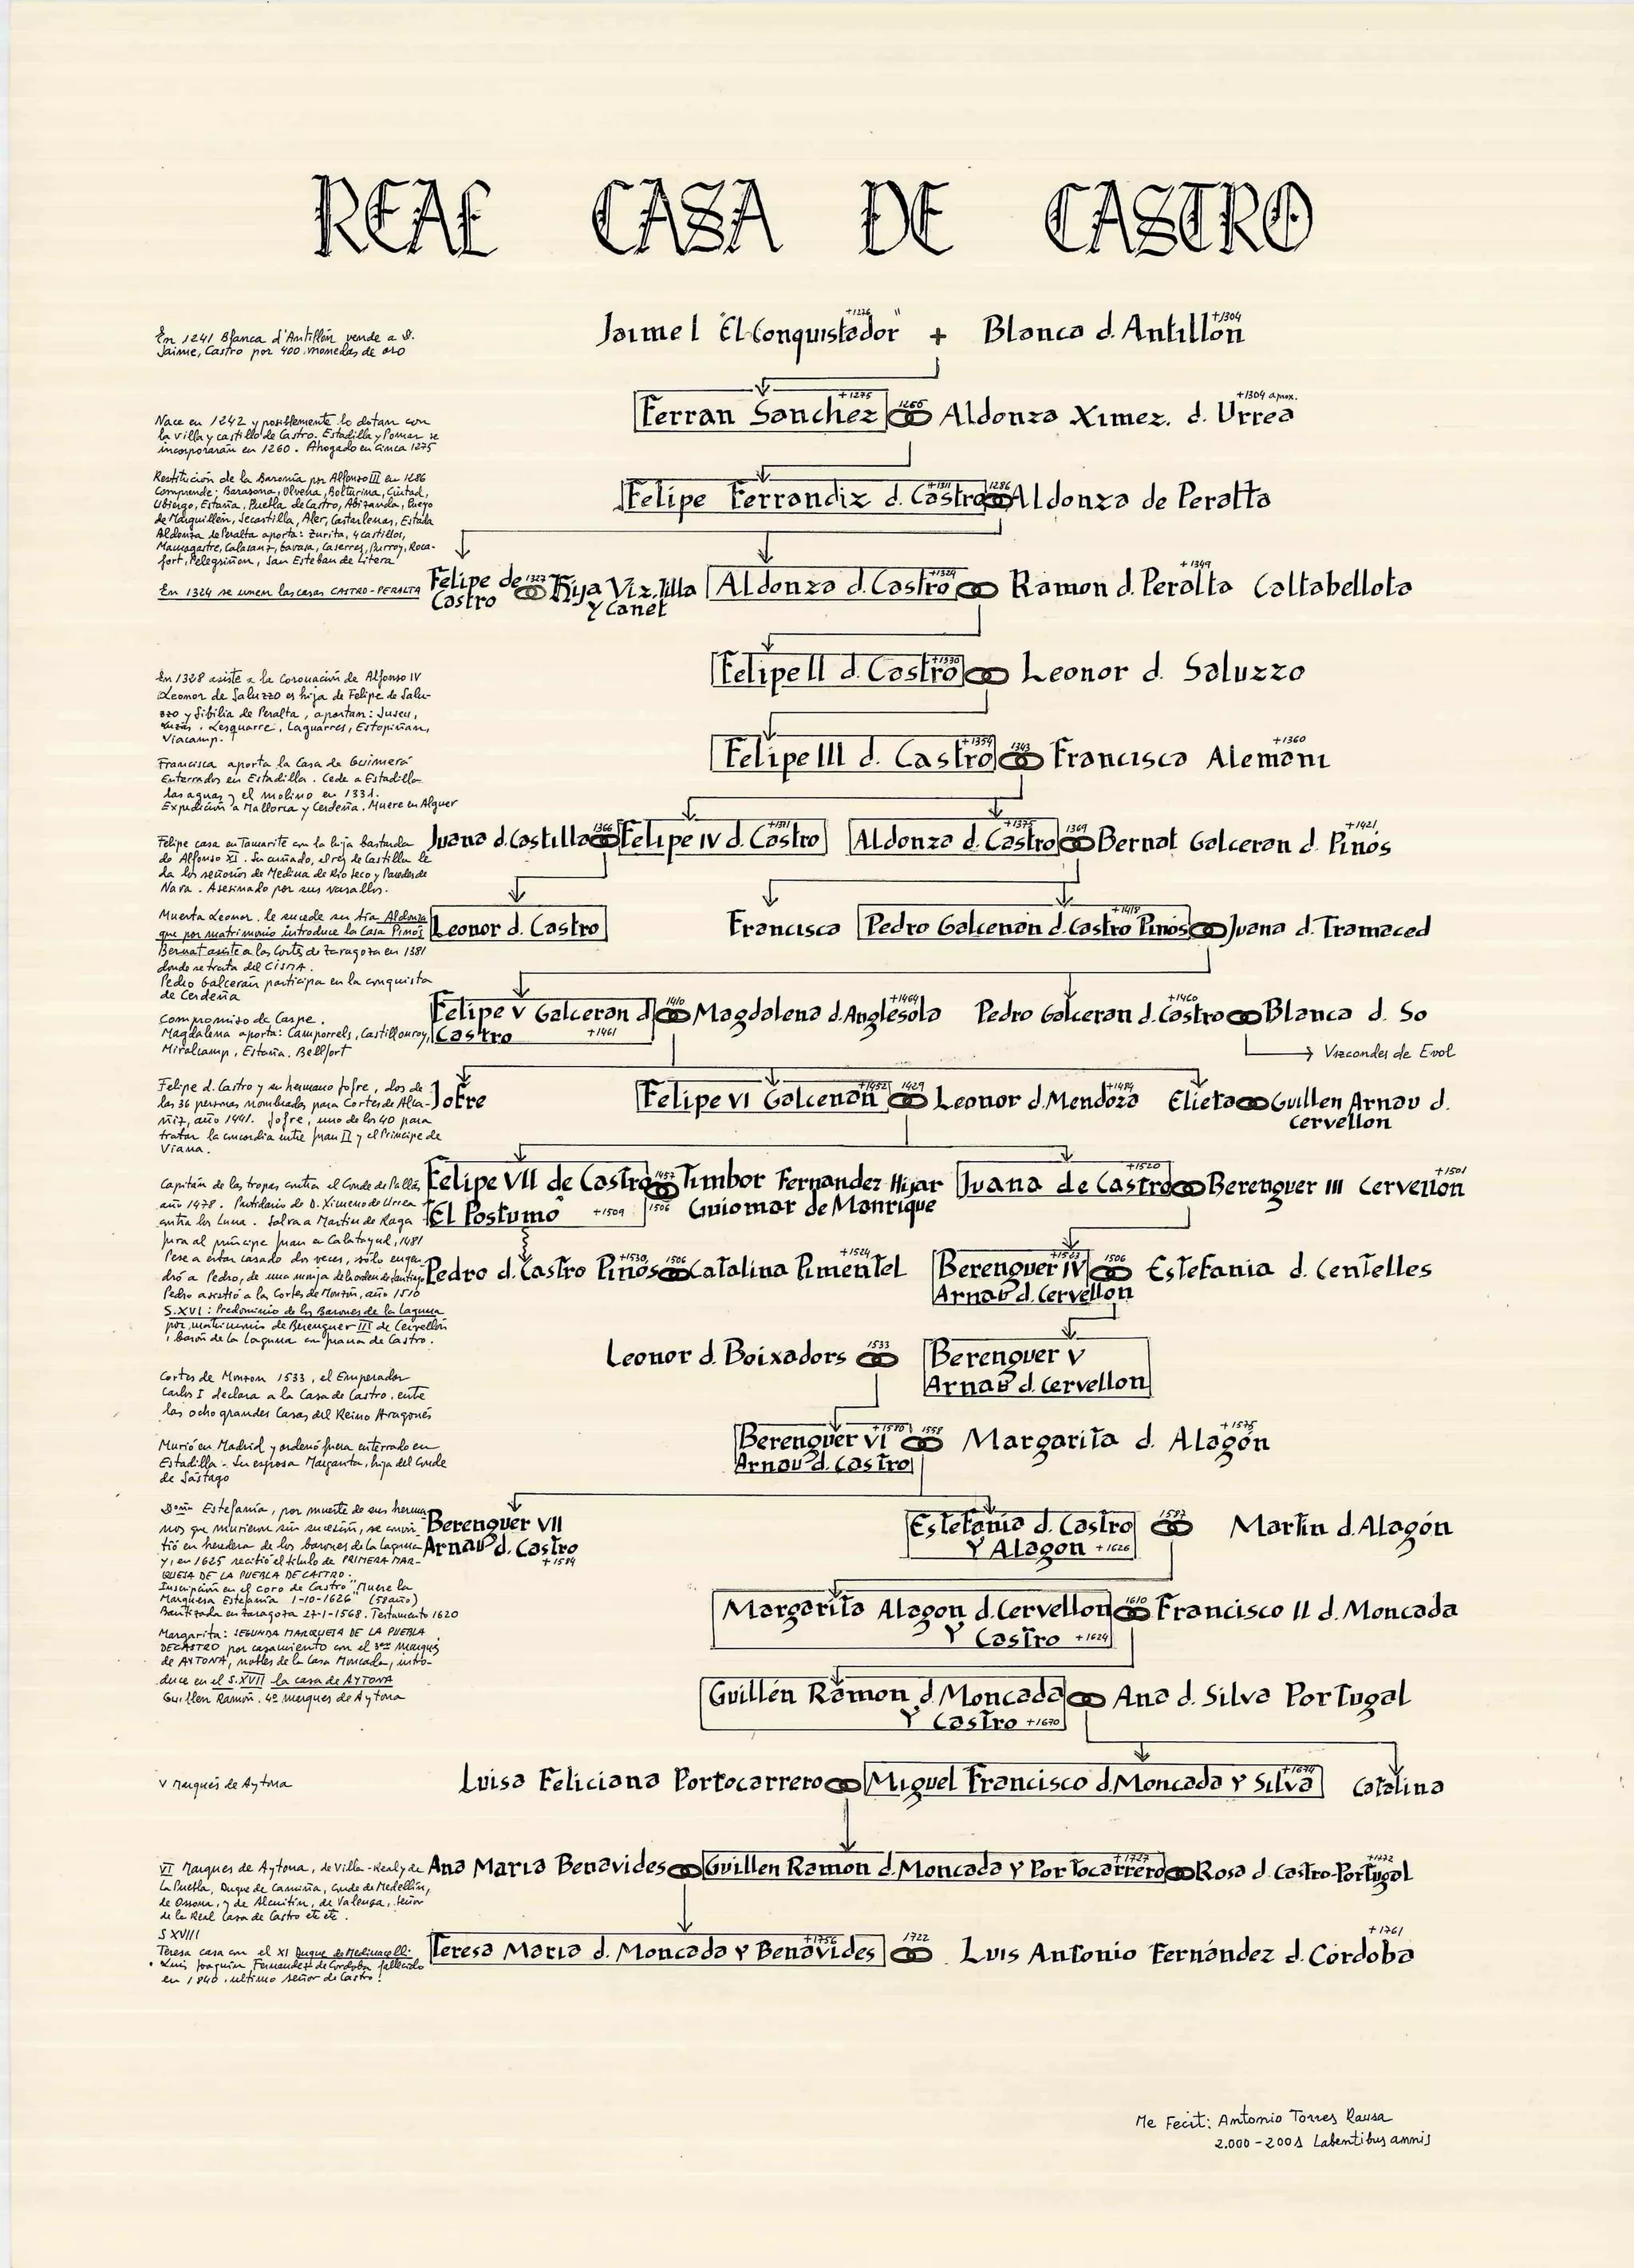 REAL CASA DE CASTRO
En 1241 Blanca d'Antillón vende a D.
Jaime, Castro por 400 monedas de oro
+1276
+1304
Jaime I "El Conquistador" + Blanca d. Antillón
Nace en 1242 y posiblemente lo dotan con
la villa y castillo de Castro. Estadilla y Pomar se
incorporarán en 1260. Ahogado en Cinca 1275
+1275
+1304 aprox.
Ferran Sanchez Aldonza Ximez. d. Urrea
Restitución de la Baronía por Alfonso III en 1286
Comprende: Barasona, Olvena, Bolturina, Ciutad,
Ubiergo, Estaña, Puebla de Castro, Abizanda, Puego
de Marguillén, Secastilla, Aler, Castarlenas, Estada
Aldonza de Peralta aporta: Zurita, 4 castillos,
Momagastre, Calasanz, Gavasa, Caserres, Purroy, Roca-
fort, Pelegriñon, San Esteban de Litera
+1311 1286
Felipe Ferrandiz d. Castro Aldonza de Peralta
En 1324 se unen las casas CASTRO-PERALTA
1327
+1324
+1349
Felipe de Castro Hija Viz. Illa y Canet
Aldonza d. Castro Ramon d. Peralta Caltabellota
En 1328 asiste a la Coronación de Alfonso IV
Leonor de Saluzzo es hija de Felipe de Salu-
zzo y Sibilia de Peralta, aportan: Juseu,
Luzás, Lesquarre, Laguarres, Estopiñan,
Viacamp.
+1330
Felipe II d. Castro Leonor d. Saluzzo
Francisca aporta la Casa de Guimerá
Enterrados en Estadilla. Cede a Estadilla
las aguas y el molino en 1331.
Expedición a Mallorca y Cerdeña. Muere en Alguer
+1354 1343
+1360
Felipe III d. Castro Francisca Alemani
Felipe casa en Tamarite con la hija bastarda
de Alfonso XI. Su cuñado, el rey de Castilla le
da los señorios de Medina de Rio Seco y Paredes de
Nava. Asesinado por sus vasallos.
1366
+1371
+1375 1369
+1421
Juana d. Castilla Felipe IV d. Castro Aldonza d. Castro Bernat Galceran d. Pinós
Muerta Leonor, le sucede su tía Aldonza
que por matrimonio introduce la Casa Pinós
Bernat asiste a las Cortes de Zaragoza en 1381
donde se trata del CISMA.
Pedro Galcerán participa en la conquista
de Cerdeña
+1418
Leonor d. Castro Francisca Pedro Galceran d. Castro Pinós Juana d. Tramaced
Compromiso de Caspe.
Magdalena aporta: Camporrels, Castillonroy,
Miralcamp, Estaña, Bellfort
1410
+1464
+1460
Felipe V Galceran d. Castro +1461 Magdalena d. Anglesola Pedro Galceran d. Castro Blanca d. So
Vizcondes de Evol
Felipe d. Castro y su hermano Jofre, dos de
las 36 personas nombradas para Cortes de Alca-
ñiz, año 1441. Jofre, uno de los 40 para
tratar la concordia entre Juan II y el Principe de
Viana.
+1452 1429
+1484
Jofre Felipe VI Galceran Leonor d. Mendoza Elieta Guillen Arnau d. Cervellon
Capitán de las tropas contra el Conde de Pallás
año 1478. Partidario de D. Ximeno de Urrea
contra los Luna. Salva a Martin de Raga
Jura al príncipe Juan en Calatayud, 1481
Pese a estar casado dos veces, sólo engen-
dró a Pedro, de una monja de la orden de Santiago
Pedro asistió a la Cortes de Monzón, año 1510
S. XVI: Predominio de los Barones de la Laguna
por matrimonio de Berenguer III de Cervellón
, barón de la Laguna con Juana de Castro.
1457
+1520
+1501
Felipe VII de Castro Timbor Fernandez Hijar Juana de Castro Berenguer III Cervellon
El Postumo +1509 1506 Guiomar de Manrique
+1530 1506
+1524
1506
Pedro d. Castro Pinós Catalina Pimentel Berenguer IV Arnau d. Cervellon Estefania d. Centelles
Cortes de Monzon 1533, el Emperador
Carlos I declara a la Casa de Castro, entre
las ocho grandes Casas del Reino Aragonés
1533
Leonor d. Boixadors Berenguer V Arnau d. Cervellon
Murió en Madrid y ordenó fuera enterrado en
Estadilla. Su esposa Margarita, hija del Conde
de Sástago
+1580 1558
+1575
Berenguer VI Arnau d. Castro Margarita d. Alagón
Doña Estefanía, por muerte de sus herma-
nos que murieron sin sucesión, se convir-
tió en heredera de los barones de la laguna
y, en 1625 recibió el título de PRIMERA MAR-
QUESA DE LA PUEBLA DE CASTRO.
Inscripción en el coro de Castro "Muere la
Marquesa Estefanía 1-10-1626" (58 año)
Bautizada en Zaragoza 27-1-1568. Testamento 1620
1587
Berenguer VII Arnau d. Castro Estefania d. Castro Y Alagon +1626 Martin d. Alagón
Margarita: SEGUNDA MARQUESA DE LA PUEBLA
DE CASTRO por casamiento con el 3er marqués
de AYTONA, nobles de la Casa Moncada, intro-
duce en el S. XVII la casa de AYTONA
Guillen Ramón. 4º marques de Aytona
1610
Margarita Alagon d. Cervellon Y Castro +1624 Francisco II d. Moncada
Guillén Ramon d. Moncada Y Castro +1670 Ana d. Silva Portugal
V Marqués de Aytona
+1674
Luisa Feliciana Portocarrero Miguel Francisco d. Moncada Y Silva Catalina
VI Marques de Aytona, de Villa-Real y de
La Puebla, Duque de Camiña, Conde de Medellín,
de Ossona, y de Alcoitin, de Valenza, señor
de la Real Casa de Castro etc etc.
+1727
+1772
Ana Maria Benavides Guillen Ramon d. Moncada Y Portocarrero Rosa d. Castro-Portugal
S XVIII
Teresa casa con el XI Duque de Medinaceli.
Luis Joaquín Fernandez de Cordoba fallecido
en 1840, ultimo señor de Castro!
+1756 1722
+1761
Teresa Maria d. Moncada Y Benavides Luis Antonio Fernández d. Cordoba
Me Fecit: Antonio Torres Rausa
2.000-2001 Labentibus annis